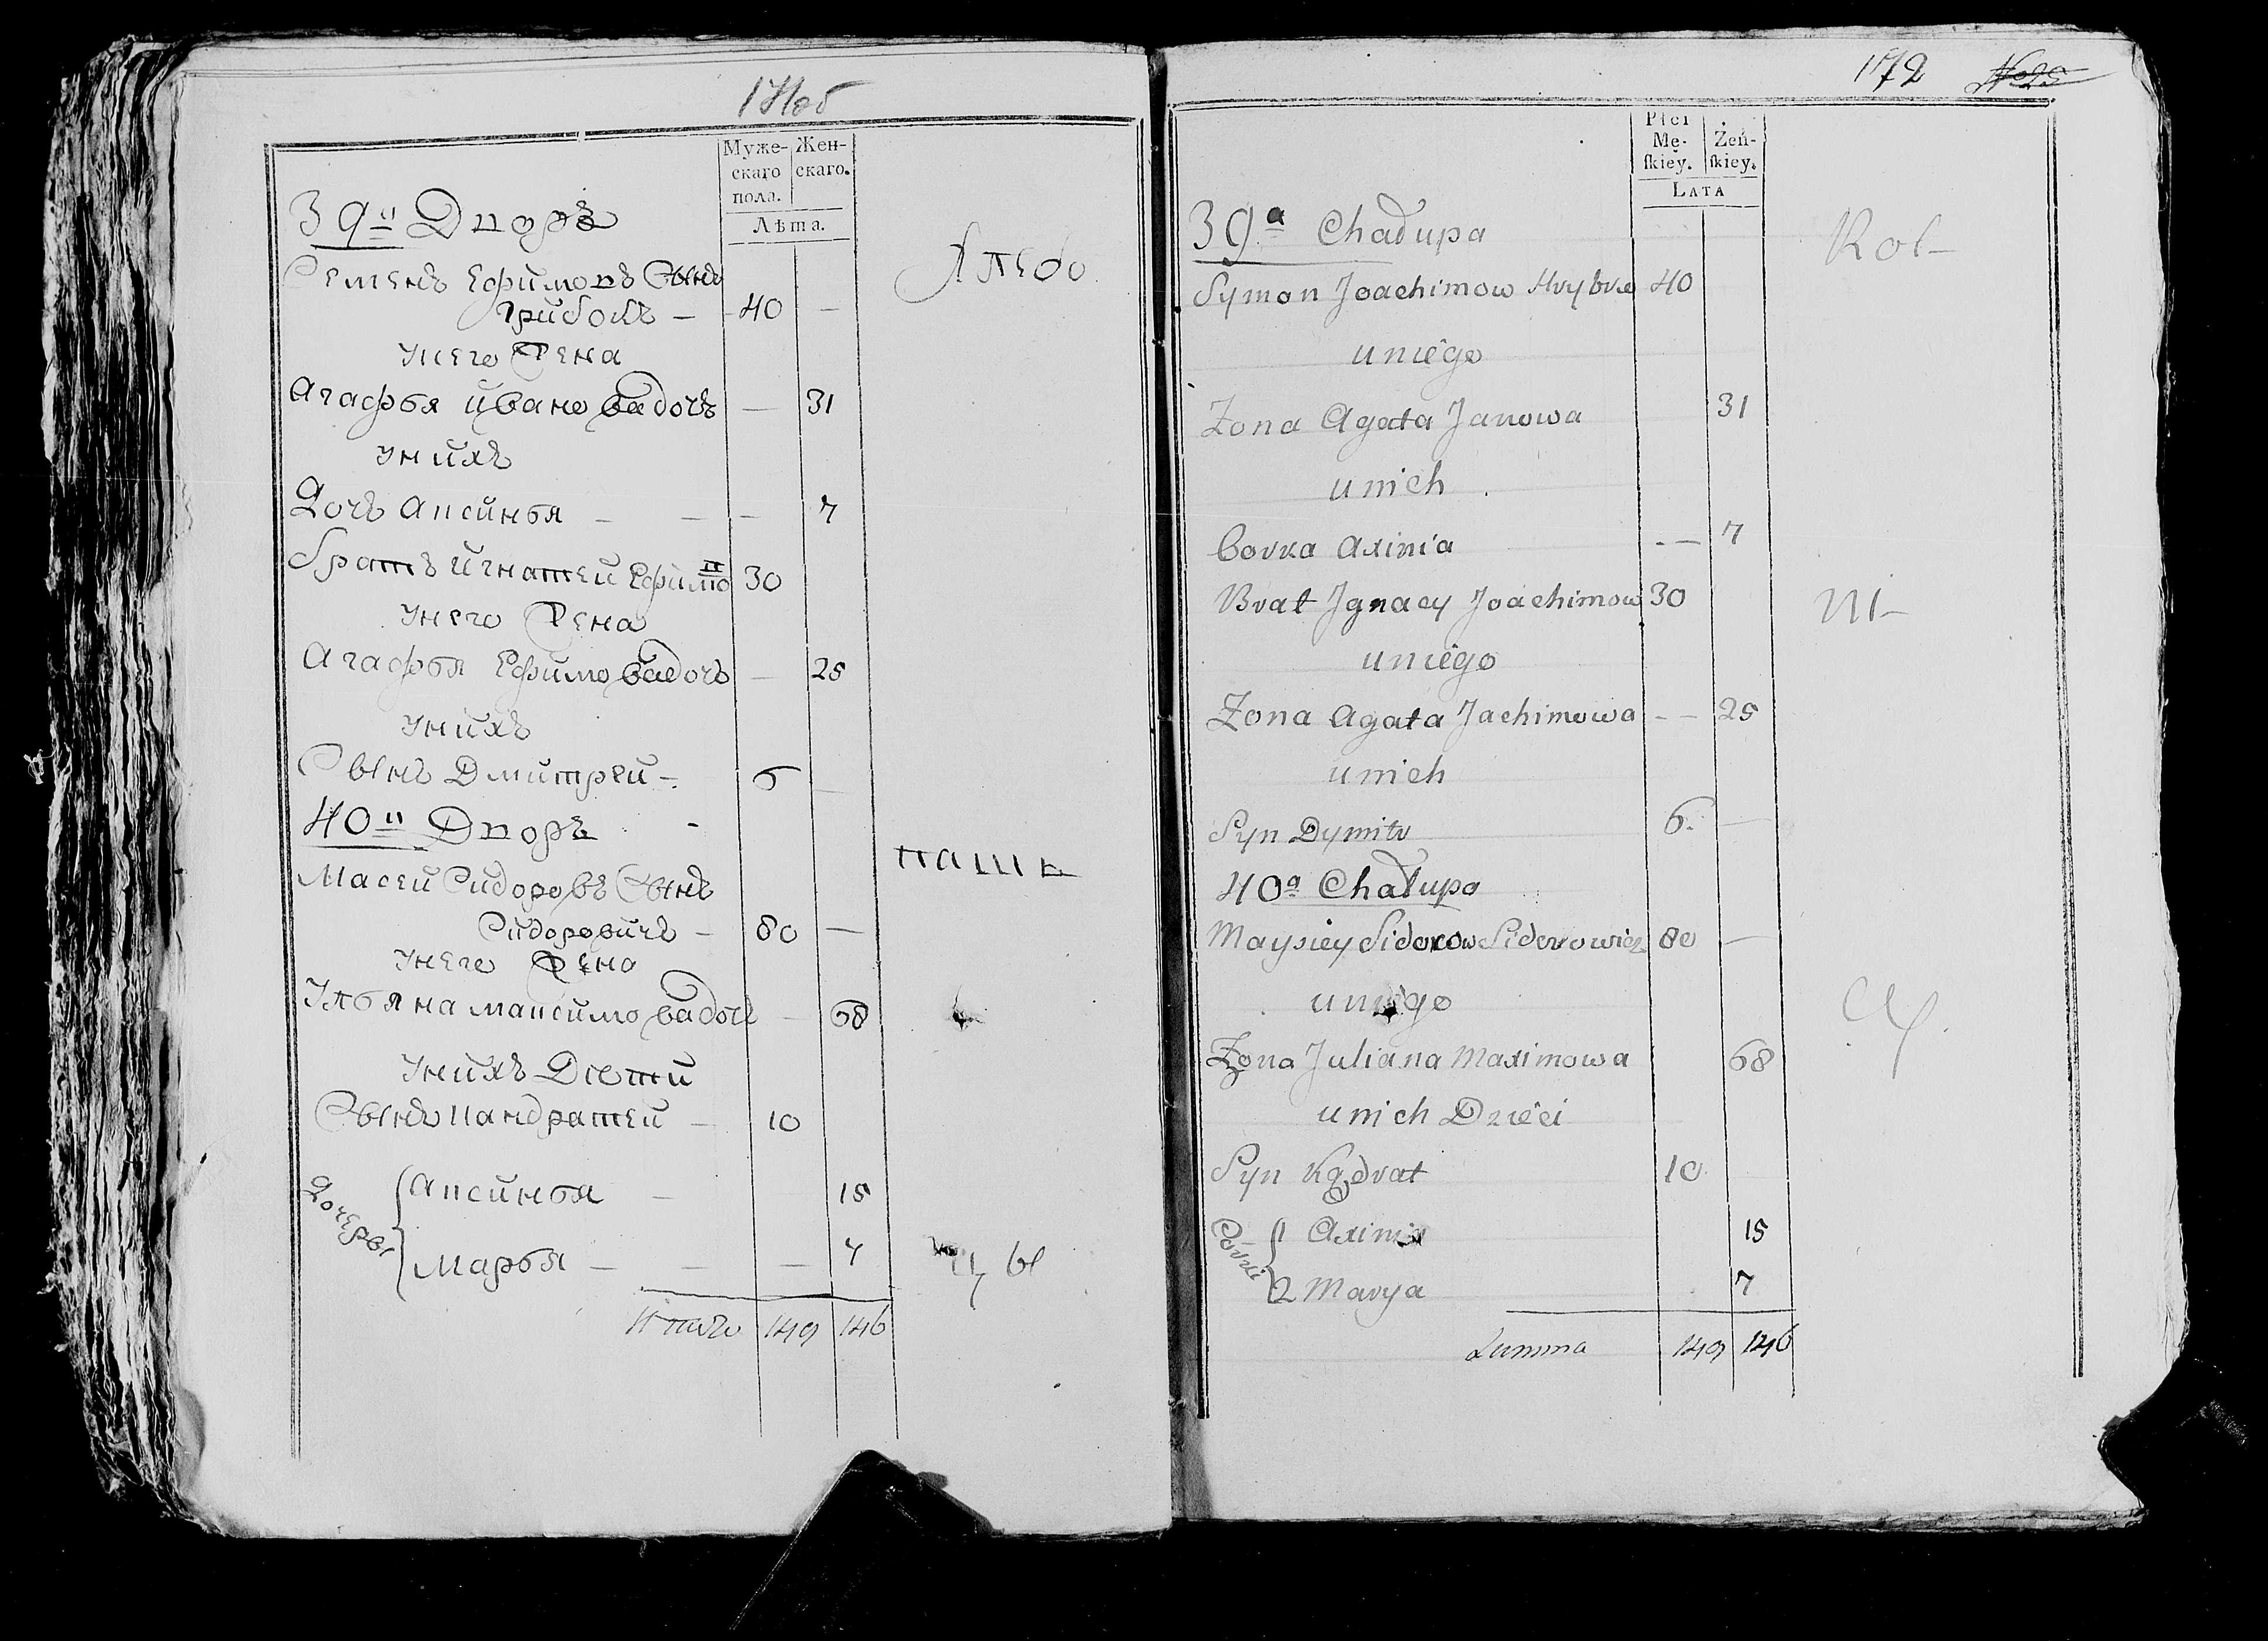 171об
Муже-
скаго
пола.
Жен-
скаго.
Лѣта.
39й Дворъ
Хлебо
Семенъ Ефимовъ Сынъ
Грибокъ — 40 —
Унего Жена
Агафья Ивановадочь — 31
Унихъ
Дочь Аксинья — — — 7
Братъ Игнатей Ефимовъ 30
Унего Жена
Агафья Ефимовадочь — 25
Унихъ
Сынъ Дмитрей — 6 —
40й Дворъ
паше
Масей Сидоровъ Сынъ
Сидоровичъ — 80 —
Унего Жена
Ульяна Максимовадочь — 68
Унихъ Дѣти
Сынъ Кандратей — 10
Дочеры
Аксинья — 15
Марья — — — 7
цы
Итого 149 146
172
Płci
Mę-
ſkiey.
Żeń-
ſkiey.
LATA
39a Chałupa
Rol-
Symon Joachimow Hrybok 40
uniego
Zona Agata Janowa 31
unich
Corka Axinia - — 7
Brat Jgnacy Joachimow 30
ni-
uniego
Zona Agata Jachimowa - — 25
unich
Syn Dymitr 6. —
40a Chałupa
Maysiey Sidorow Sidorowicz 80 —
uniego
cy.
Zona Juliana Maximowa 68
unich Dzieci
Syn Kądrat 10
Corki
1 Axinia 15
2 Marya 7
Summa 149 146